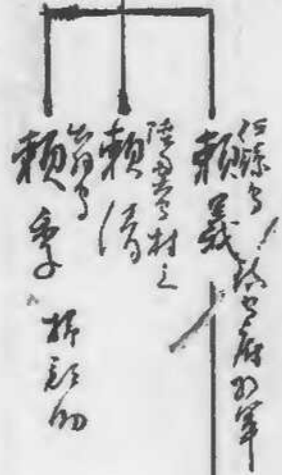 伊豫守
頼義 鎮守府将軍
陸奥守 村上
頼清
頼季 掃部助